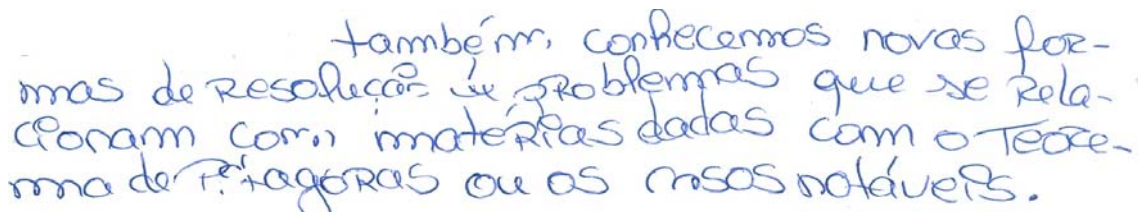 também, conhecemos novas for-
mas de resolução de problemas que se rela-
cionam com matérias dadas com o Teore-
ma de Pitágoras ou os casos notáveis.